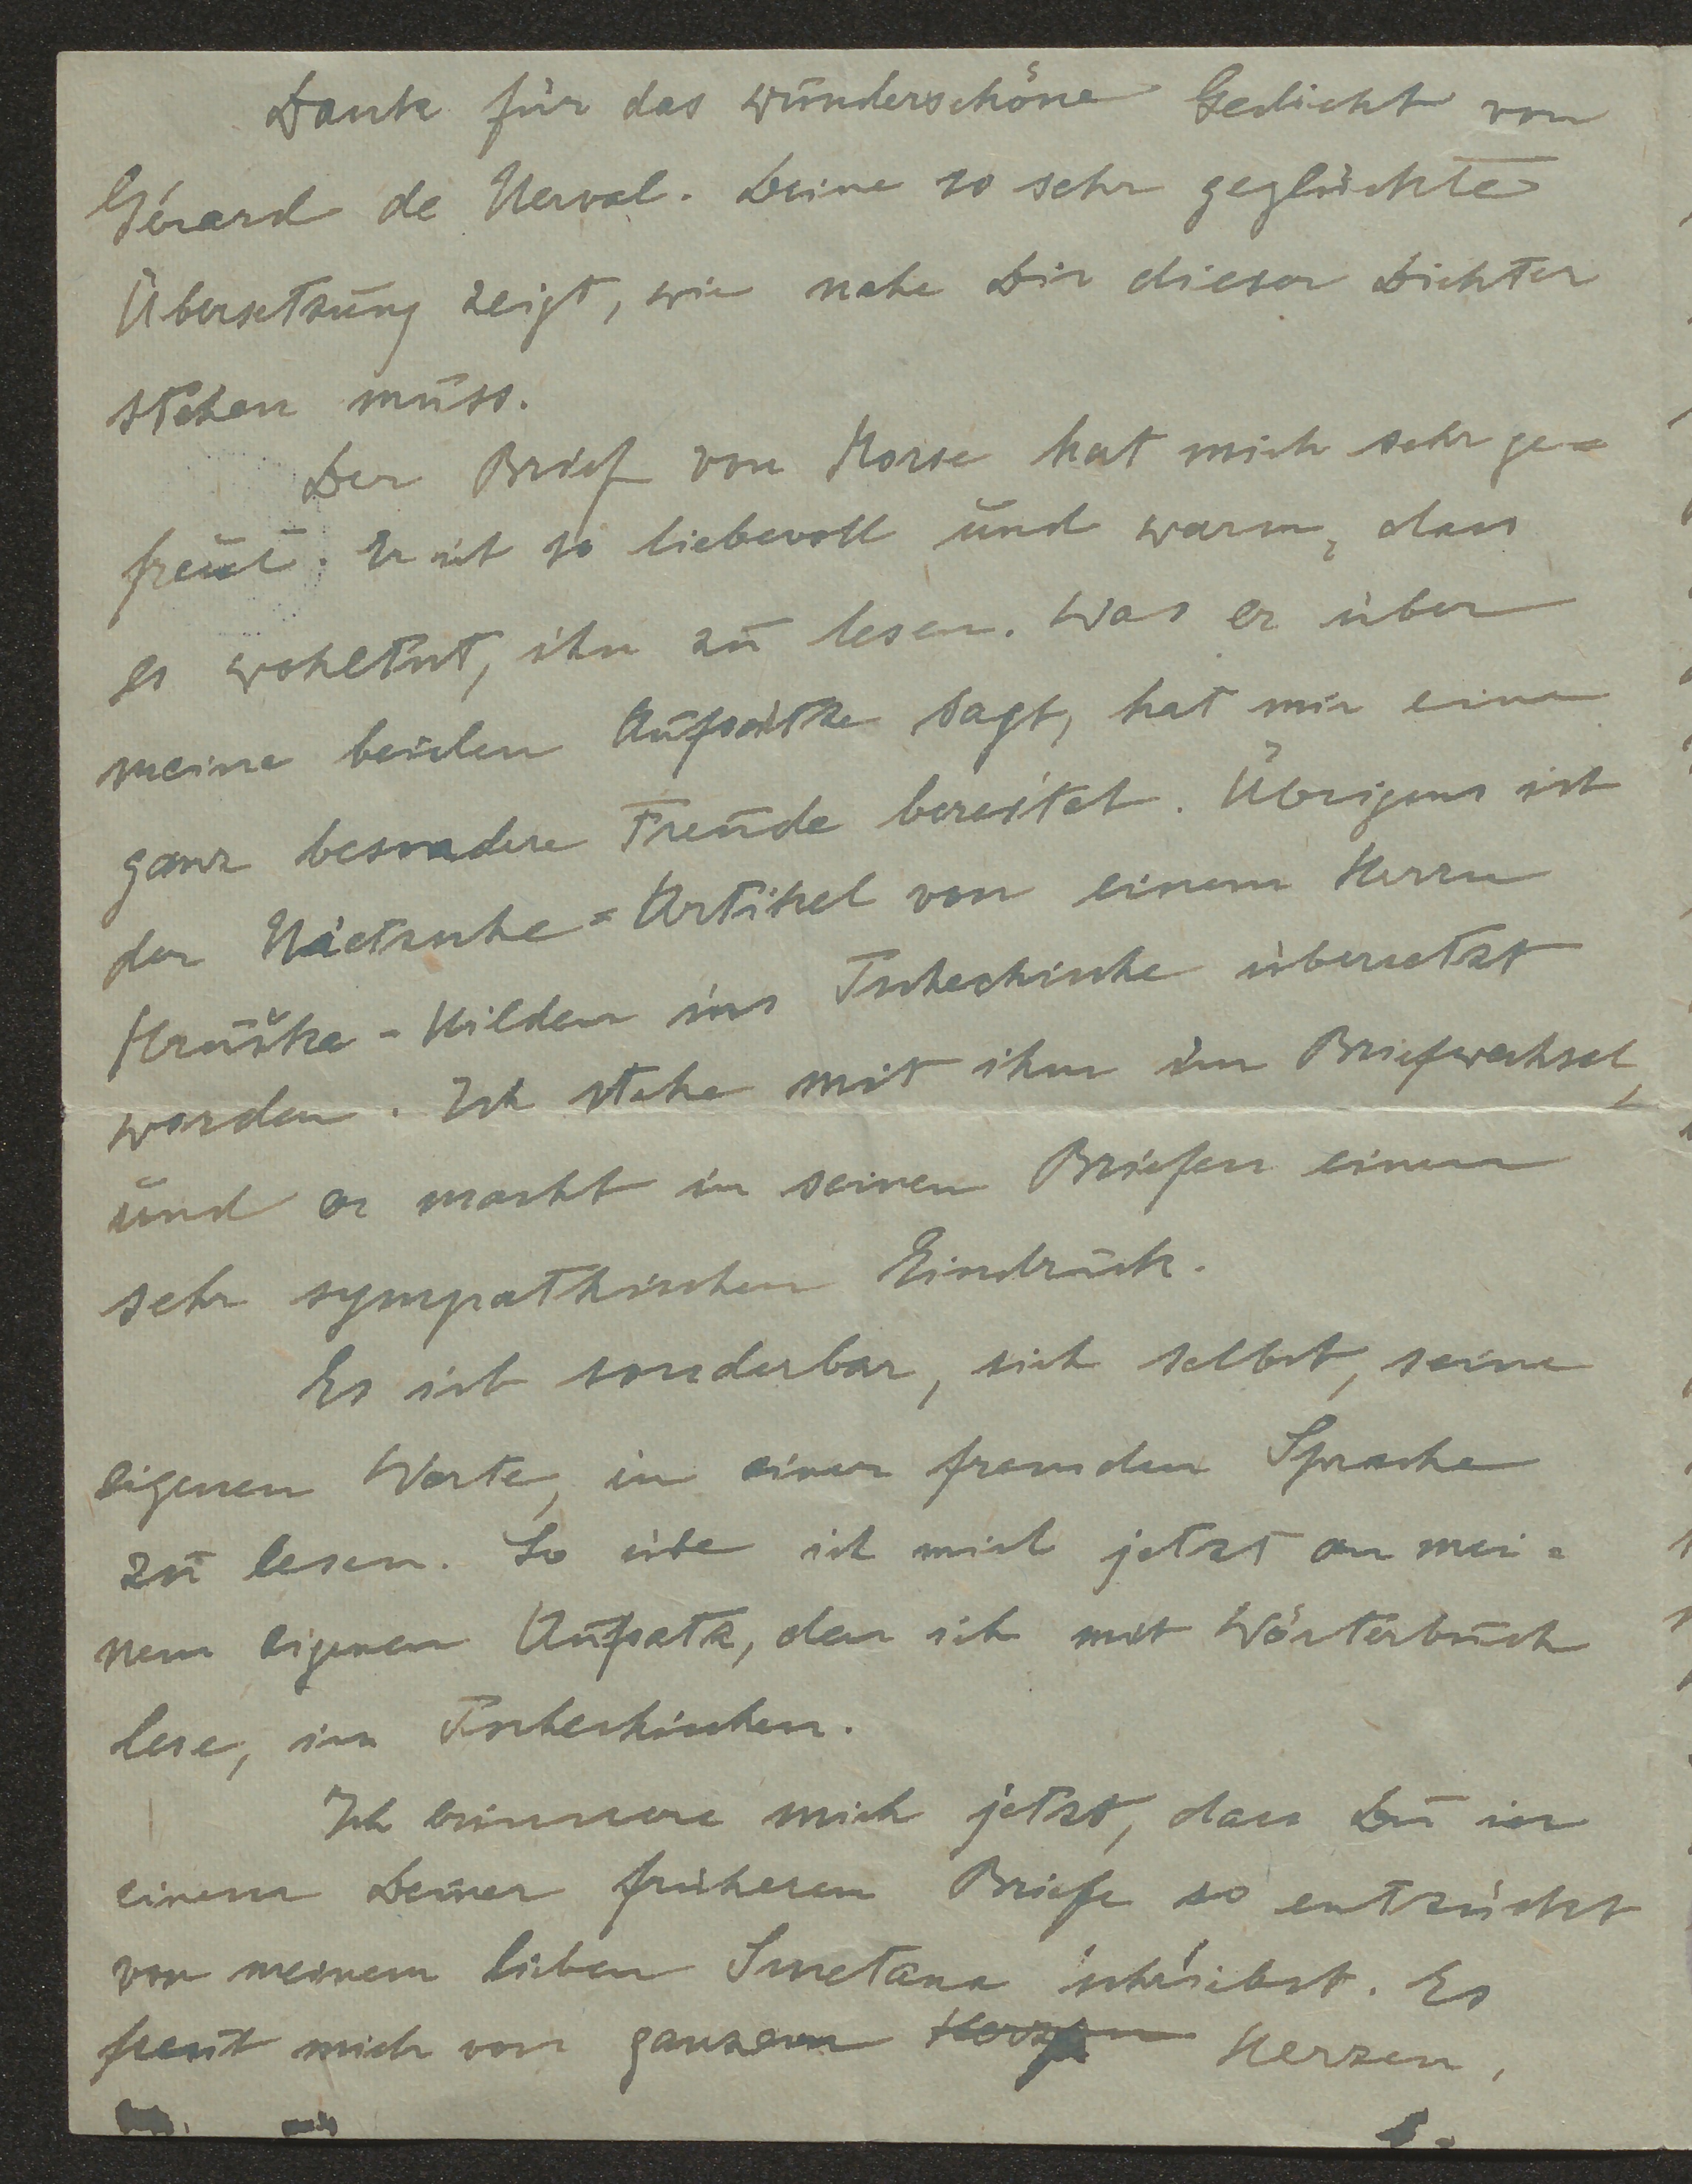 Dank für das wunderschöne Gedicht von
Gérard de Nerval. Deine so sehr geglückte
Übersetzung zeigt, wie nahe Dir dieser Dichter
stehen muss.
Der Brief von Morse hat mich sehr ge=
freut. Er ist so liebevoll und warm, dass
es wohltut, ihn zu lesen. Was er über
meine beiden Aufsätze sagt, hat mir eine
ganz besondere Freude bereitet. Übrigens ist
der Nietzsche=Artikel von einem Herrn
Hruška-Wilden ins Tschechische übersetzt
worden. Ich stehe mit ihm im Briefwechsel,
und er macht in seinen Briefen einen
sehr sympathischen Eindruck.
Es ist sonderbar, sich selbst, seine
eigenen Worte, in einer fremden Sprache
zu lesen. So übe ich mich jetzt an mei=
nem eigenen Aufsatz, den ich mit Wörterbuch
lese, im Tschechischen.
Ich erinnere mich jetzt, dass Du in
einem Deiner früheren Briefe so entzückt
von meinem lieben Smetana schriebst. Es
freut mich von ganzem Herzen Herzen,